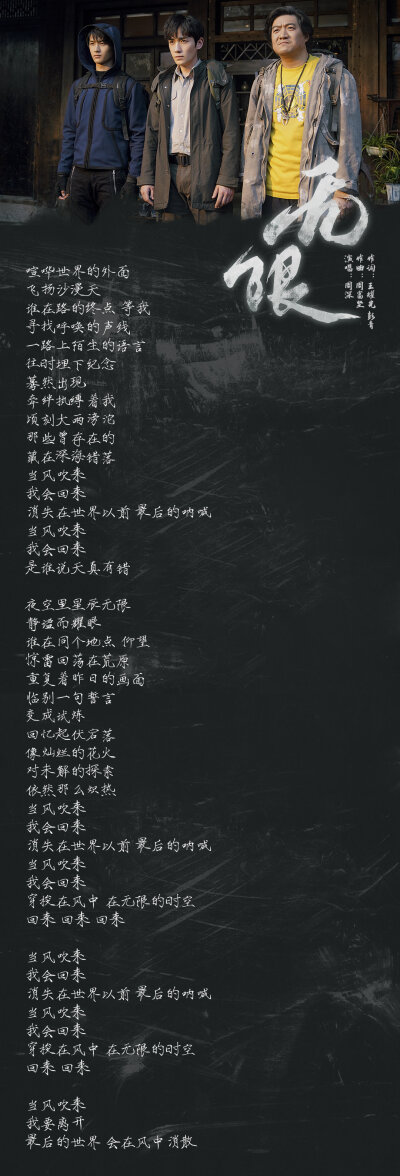 无限
作词：王耀光 彭青
作曲：周富堃
演唱：周深
喧哗世界的外面
飞扬沙漫天
谁在路的终点 等我
寻找呼唤的声线
一路上陌生的语言
往时埋下纪念
蓦然出现
牵绊执缚着我
顷刻大雨滂沱
那些曾存在的
藏在深海错落
当风吹来
我会回来
消失在世界以前 最后的呐喊
当风吹来
我会回来
是谁说天真有错
夜空里星辰无限
静谧而耀眼
谁在同个地点 仰望
惊雷回荡在荒原
重复着昨日的画面
临别一句誓言
变成试炼
回忆起伏宕落
像灿烂的花火
对未解的探索
依然那么炽热
当风吹来
我会回来
消失在世界以前 最后的呐喊
当风吹来
我会回来
穿梭在风中 在无限的时空
回来 回来 回来
当风吹来
我会回来
消失在世界以前 最后的呐喊
当风吹来
我会回来
穿梭在风中 在无限的时空
回来 回来
当风吹来
我要离开
最后的世界 会在风中 消散